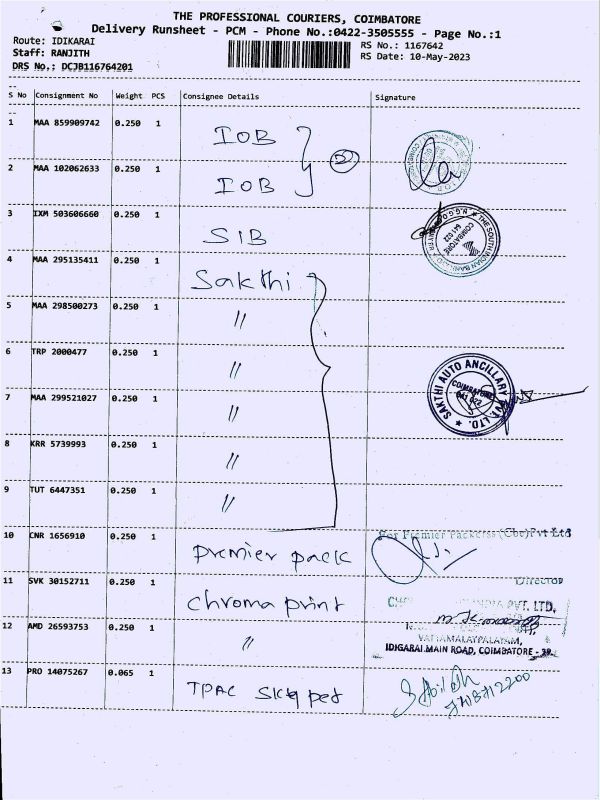 THE PROFESSIONAL COURIERS, COIMBATORE
Delivery Runsheet - PCM - Phone No.:0422-3505555 - Page No.:1
Route: IDIKARAI
Staff: RANJITH
DRS No.: DCJB116764201
RS No.: 1167642
RS Date: 10-May-2023
S No Consignment No Weight PCS Consignee Details Signature
1 MAA 859909742 0.250 1 IOB
2 MAA 102062633 0.250 1 IOB
3 IXM 503606660 0.250 1 SIB
THE SOUTH INDIAN BANK
COIMBATORE
641 022
4 MAA 295135411 0.250 1 Sakthi
5 MAA 298500273 0.250 1 "
6 TRP 2000477 0.250 1 "
7 MAA 299521027 0.250 1 "
SAKTHI AUTO ANCILLARY PVT. LTD.
COIMBATORE
641 022
8 KRR 5739993 0.250 1 "
9 TUT 6447351 0.250 1 "
10 CNR 1656910 0.250 1 premier pack
For Premier Packerss (Cbe) Pvt Ltd
Director
11 SVK 30152711 0.250 1 chroma print
PVT. LTD.
12 AMD 26593753 0.250 1 "
VATTAMALAYPALAYAM,
IDIGARAI MAIN ROAD, COIMBATORE - 39.
13 PRO 14075267 0.065 1 TPAC